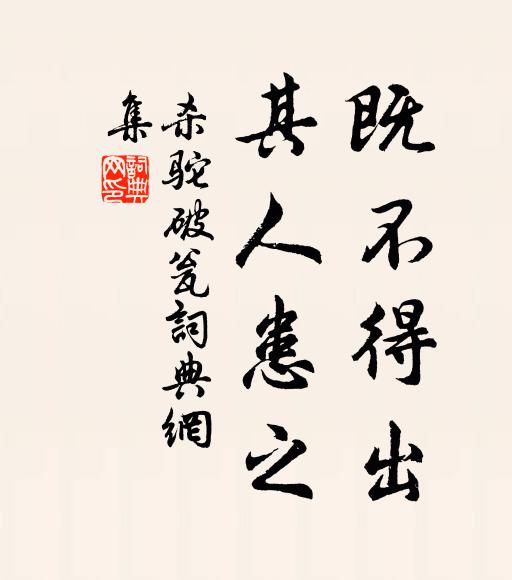 既不得出
其人患之
杀驼破瓮詞典網
集
詞典
网印